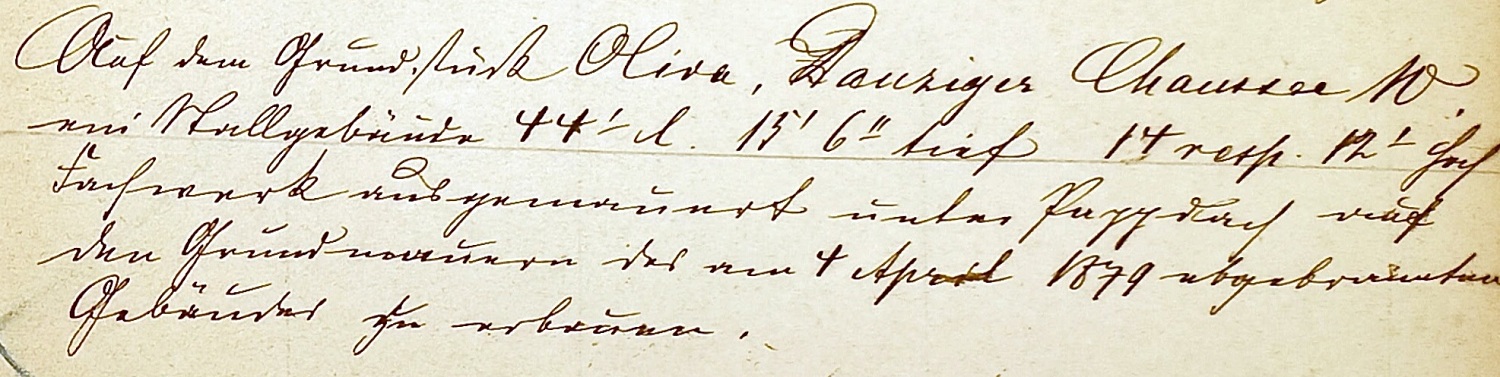 Auf dem Grundstück Oliva, Danziger Chaussee 10.
ein Stallgebäude 44' l. 15' 6" tief 14 resp. 12' hoch
Fachwerk ausgemauert unter Pappdach auf
den Grundmauern des am 4 April 1879 abgebrannten
Gebäudes zu erbauen.